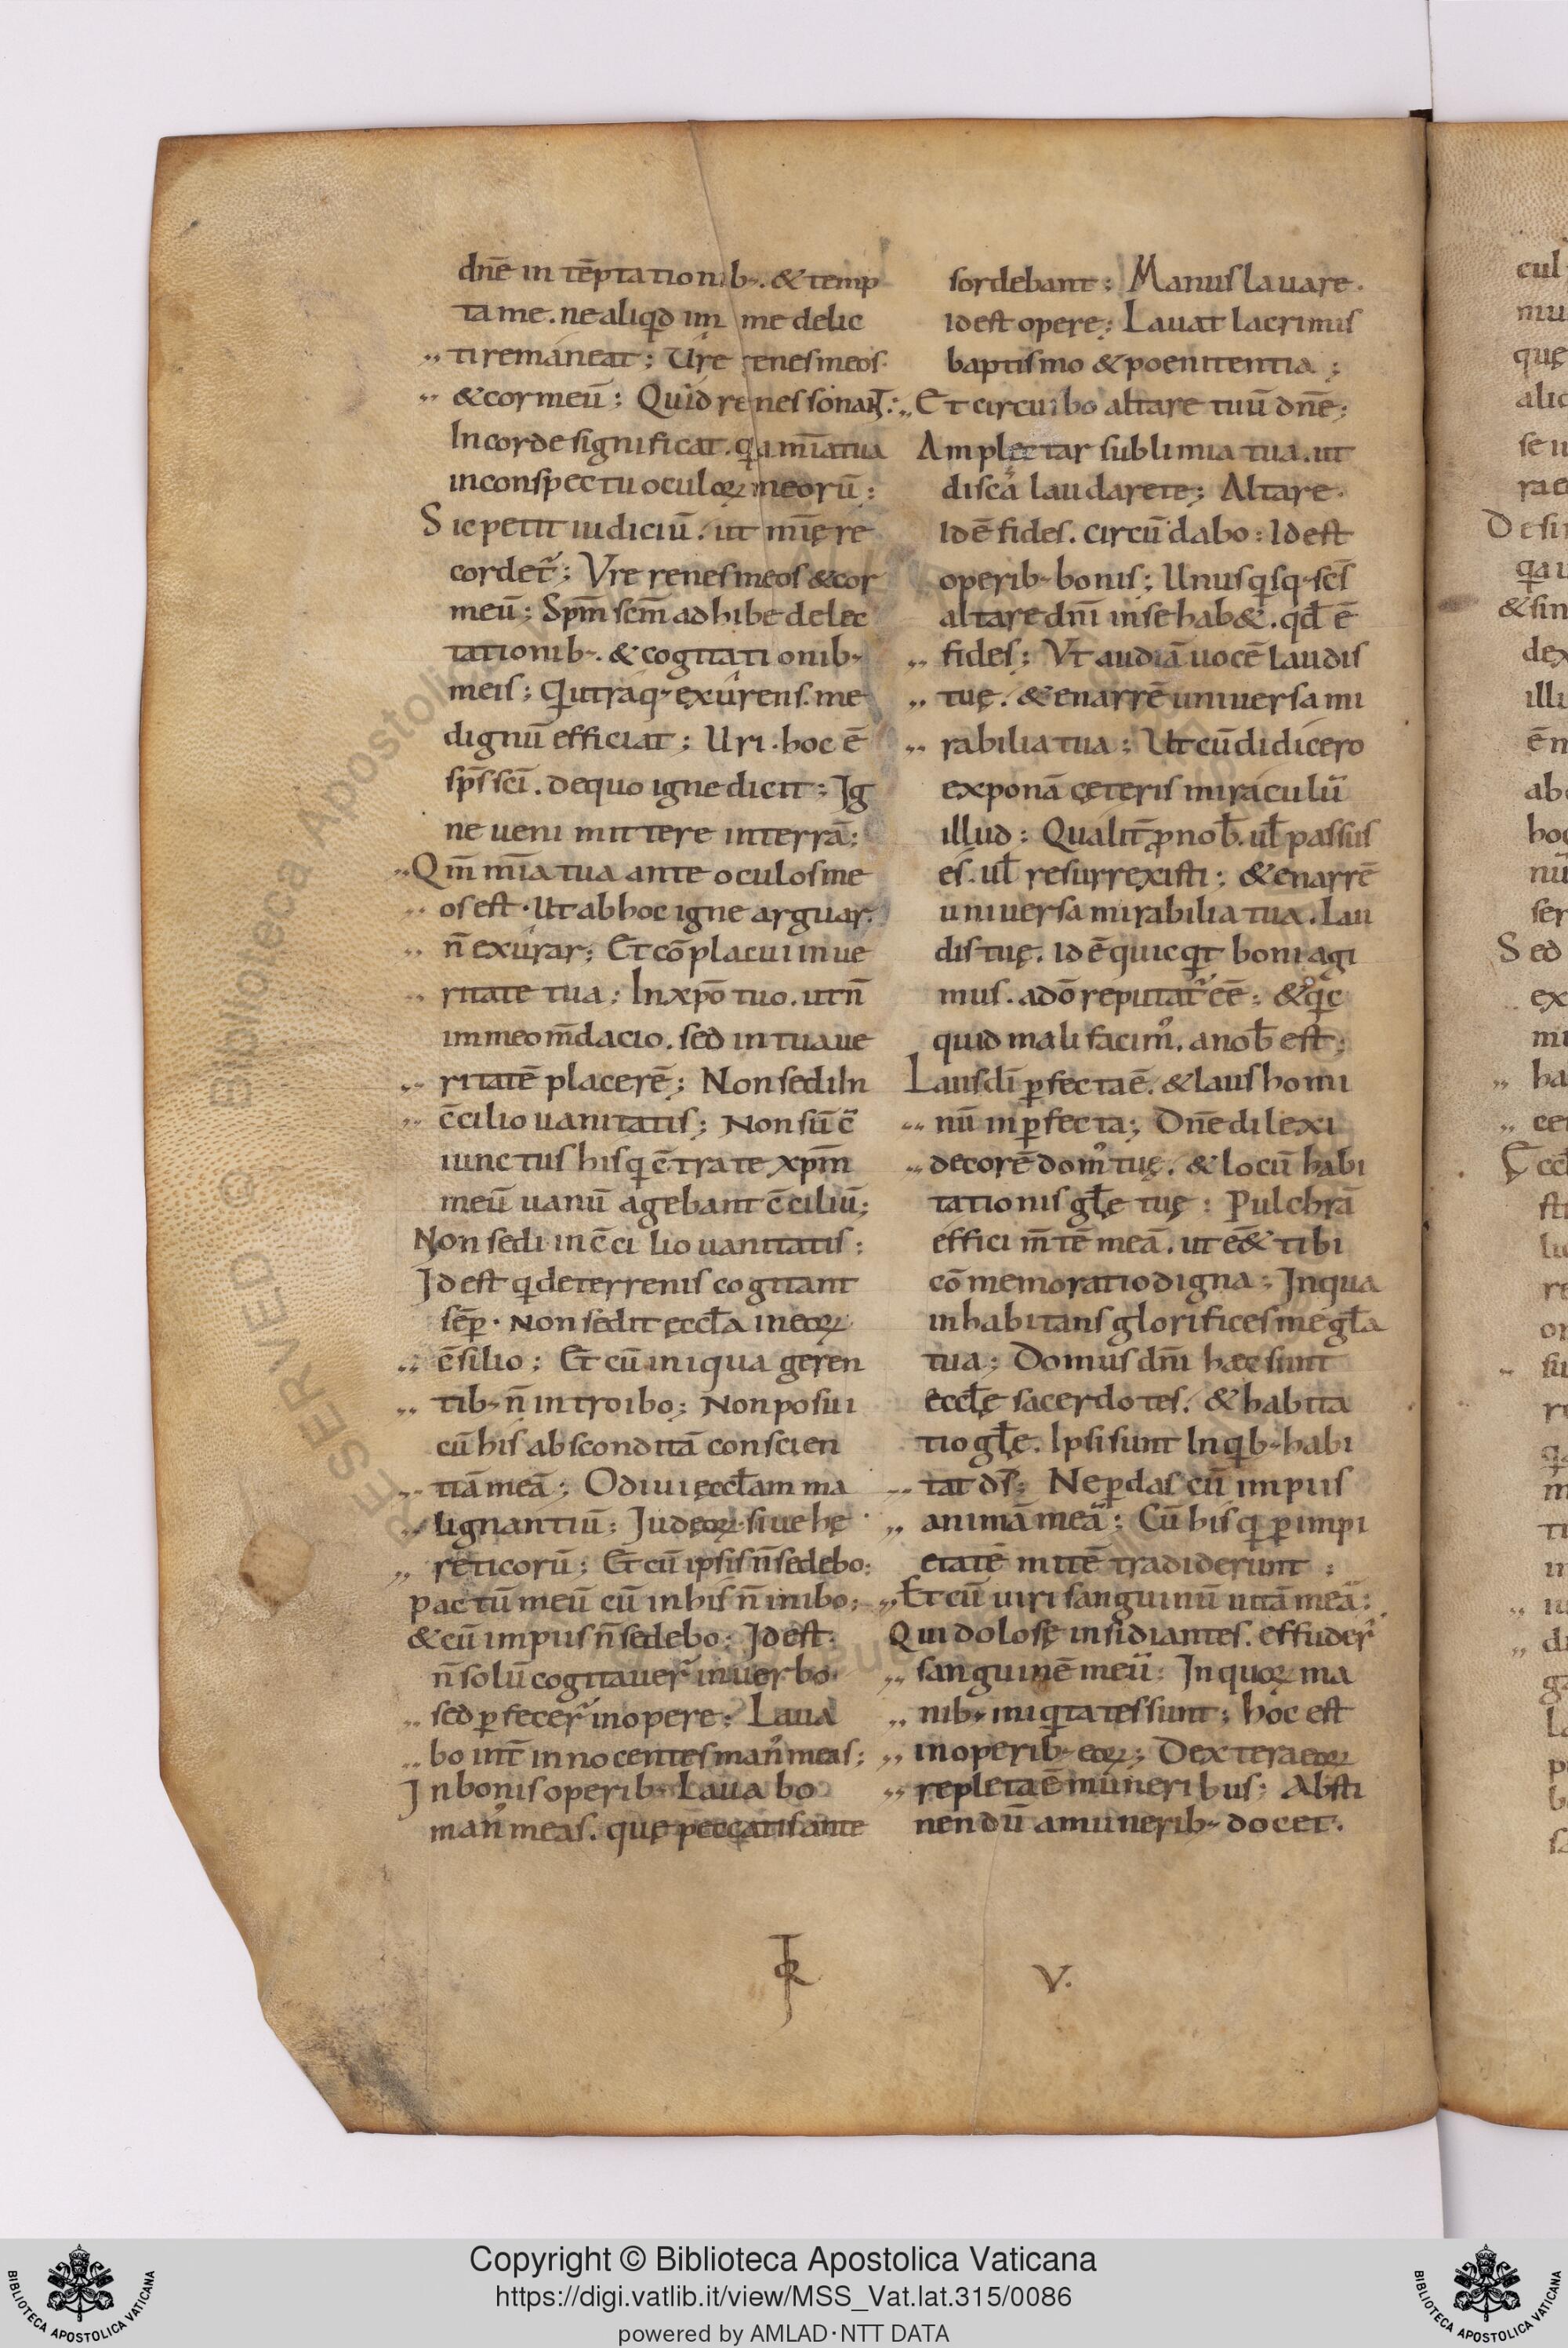 dnē in tēptationib·. & temp
ta me. ne aliqd im me delic
ti remaneat; Ure renes meos.
& cor meū; Quid renes sonant:
In corde significat. qa mīa tua
in conspectu oculoꝝ meorū;
Sic petit iudiciū. ut mię re
cordet; Vre renes meos & cor
meū; Spm̄ scm̄ adhibe delec
tationib·. & cogitationib·
meis; Qi utraq· exurens. me
dignū efficiat; Uri. hoc ē
sps̄ sci. de quo igne dicit; Ig
ne ueni mittere in terrā;
Qm̄ mīa tua ante oculos me
os est. Ut ab hoc igne arguar.
n̄ exurar; Et cōplacui in ue
ritate tua; In xp̄o tuo. ut n̄
im meo m̄dacio. sed in tua ue
ritatē placerē; Non sedi In
c̄cilio uanitatis; Non sū c̄
iunctus his qi c̄tra te xpm̄
meū uanū agebant c̄ciliū;
Non sedi in c̄cilio uanitatis;
Id est qi de terrenis cogitant
sēꝑ. Non sedit ęccła in eoꝝ
c̄silio; Et cū iniqua geren
tib· n̄ introibo; Non posui
cū his absconditā conscien
tiā meā; Odiui ęccłam ma
lignantiū; Iudęoꝝ siue hę
reticorū; Et cū ipsis n̄ sedebo;
pactū meū cū in his n̄ inibo;
& cū impiis n̄ sedebo; Id est.
n̄ solū cogitauer in uerbo.
sed ꝑfecer in opere; Laua
bo int̄ innocentes man meas;
In bonis operib· Lauabo
man meas. quę peccatis ante
sordebant; Manus lauare.
id est opere; Lauat lacrimis
baptismo & poenitentia;
Et circuibo altare tuū dnē;
Amplectar sublimia tua. ut
discā laudare te; Altare.
Id ē fides. circūdabo: Id est
operib· bonis; Unusqisq· scs̄
altare dnī in se hab&. qd ē
fides; Vt audiā uocē laudis
tuę. & enarrē uniuersa mi
rabilia tua; Ut cū didicero
exponā ceteris miraculū
illud; Qualit̄ ꝓ nob. uł passus
es. uł resurrexisti; & enarrē
uniuersa mirabilia tua. Lau
dis tuę. Id ē quicqit boni agi
mus. a dō reputat ēē; & qic
quid mali facim. a nob est;
Laus dī ꝑfecta ē. & laus homi
nū inꝑfecta; Dnē dilexi
decorē dom tuę. & locū habi
tationis głę tuę; Pulchrā
effici m̄tē meā. ut ē& tibi
cōmemoratio digna; In qua
inhabitans glorifices me gła
tua; Domus dnī haec sunt
eccłę sacerdotes. & habita
tio głę. Ipsi sunt In qib· habi
tat ds̄; Ne ꝑdas cū impiis
animā meā; Cū his qi ꝑ impi
etatē m̄tē tradiderunt;
Et cū uiri sanguinū uitā meā;
Qui dolosę insidiantes. effuder
sanguinē meū; In quoꝝ ma
nib· iniqitates sunt; hoc est
in operib· eoꝝ; Dextera eoꝝ
repleta ē muneribus; Absti
nendū a munerib· docet.
V.
cul
Copyright © Biblioteca Apostolica Vaticana
https://digi.vatlib.it/view/MSS_Vat.lat.315/0086
powered by AMLAD·NTT DATA
BIBLIOTECA APOSTOLICA VATICANA
BIBLIOTECA APOSTOLICA VATICANA